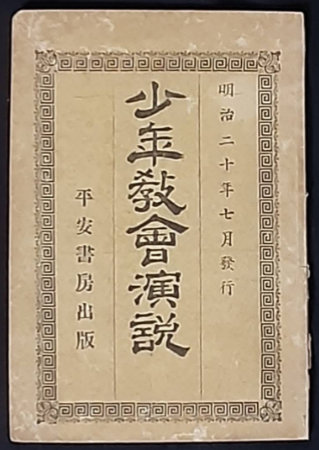 明治二十年七月發行
少年教會演説
平安書房出版